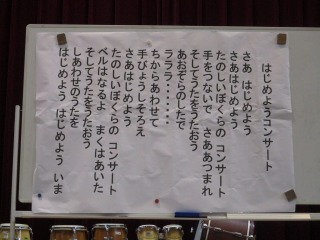 はじめようコンサート
さあ はじめよう
さあはじめよう
たのしいぼくらの コンサート
手をつないで さああつまれ
そしてうたをうたおう
あおぞらのしたで
ラララ・・・・・・
ちからあわせて
手びょうしそろえ
さあはじめよう
たのしいぼくらの コンサート
ベルはなるよ まくはあいた
そしてうたをうたおう
しあわせのうたを
はじめよう はじめよう いま